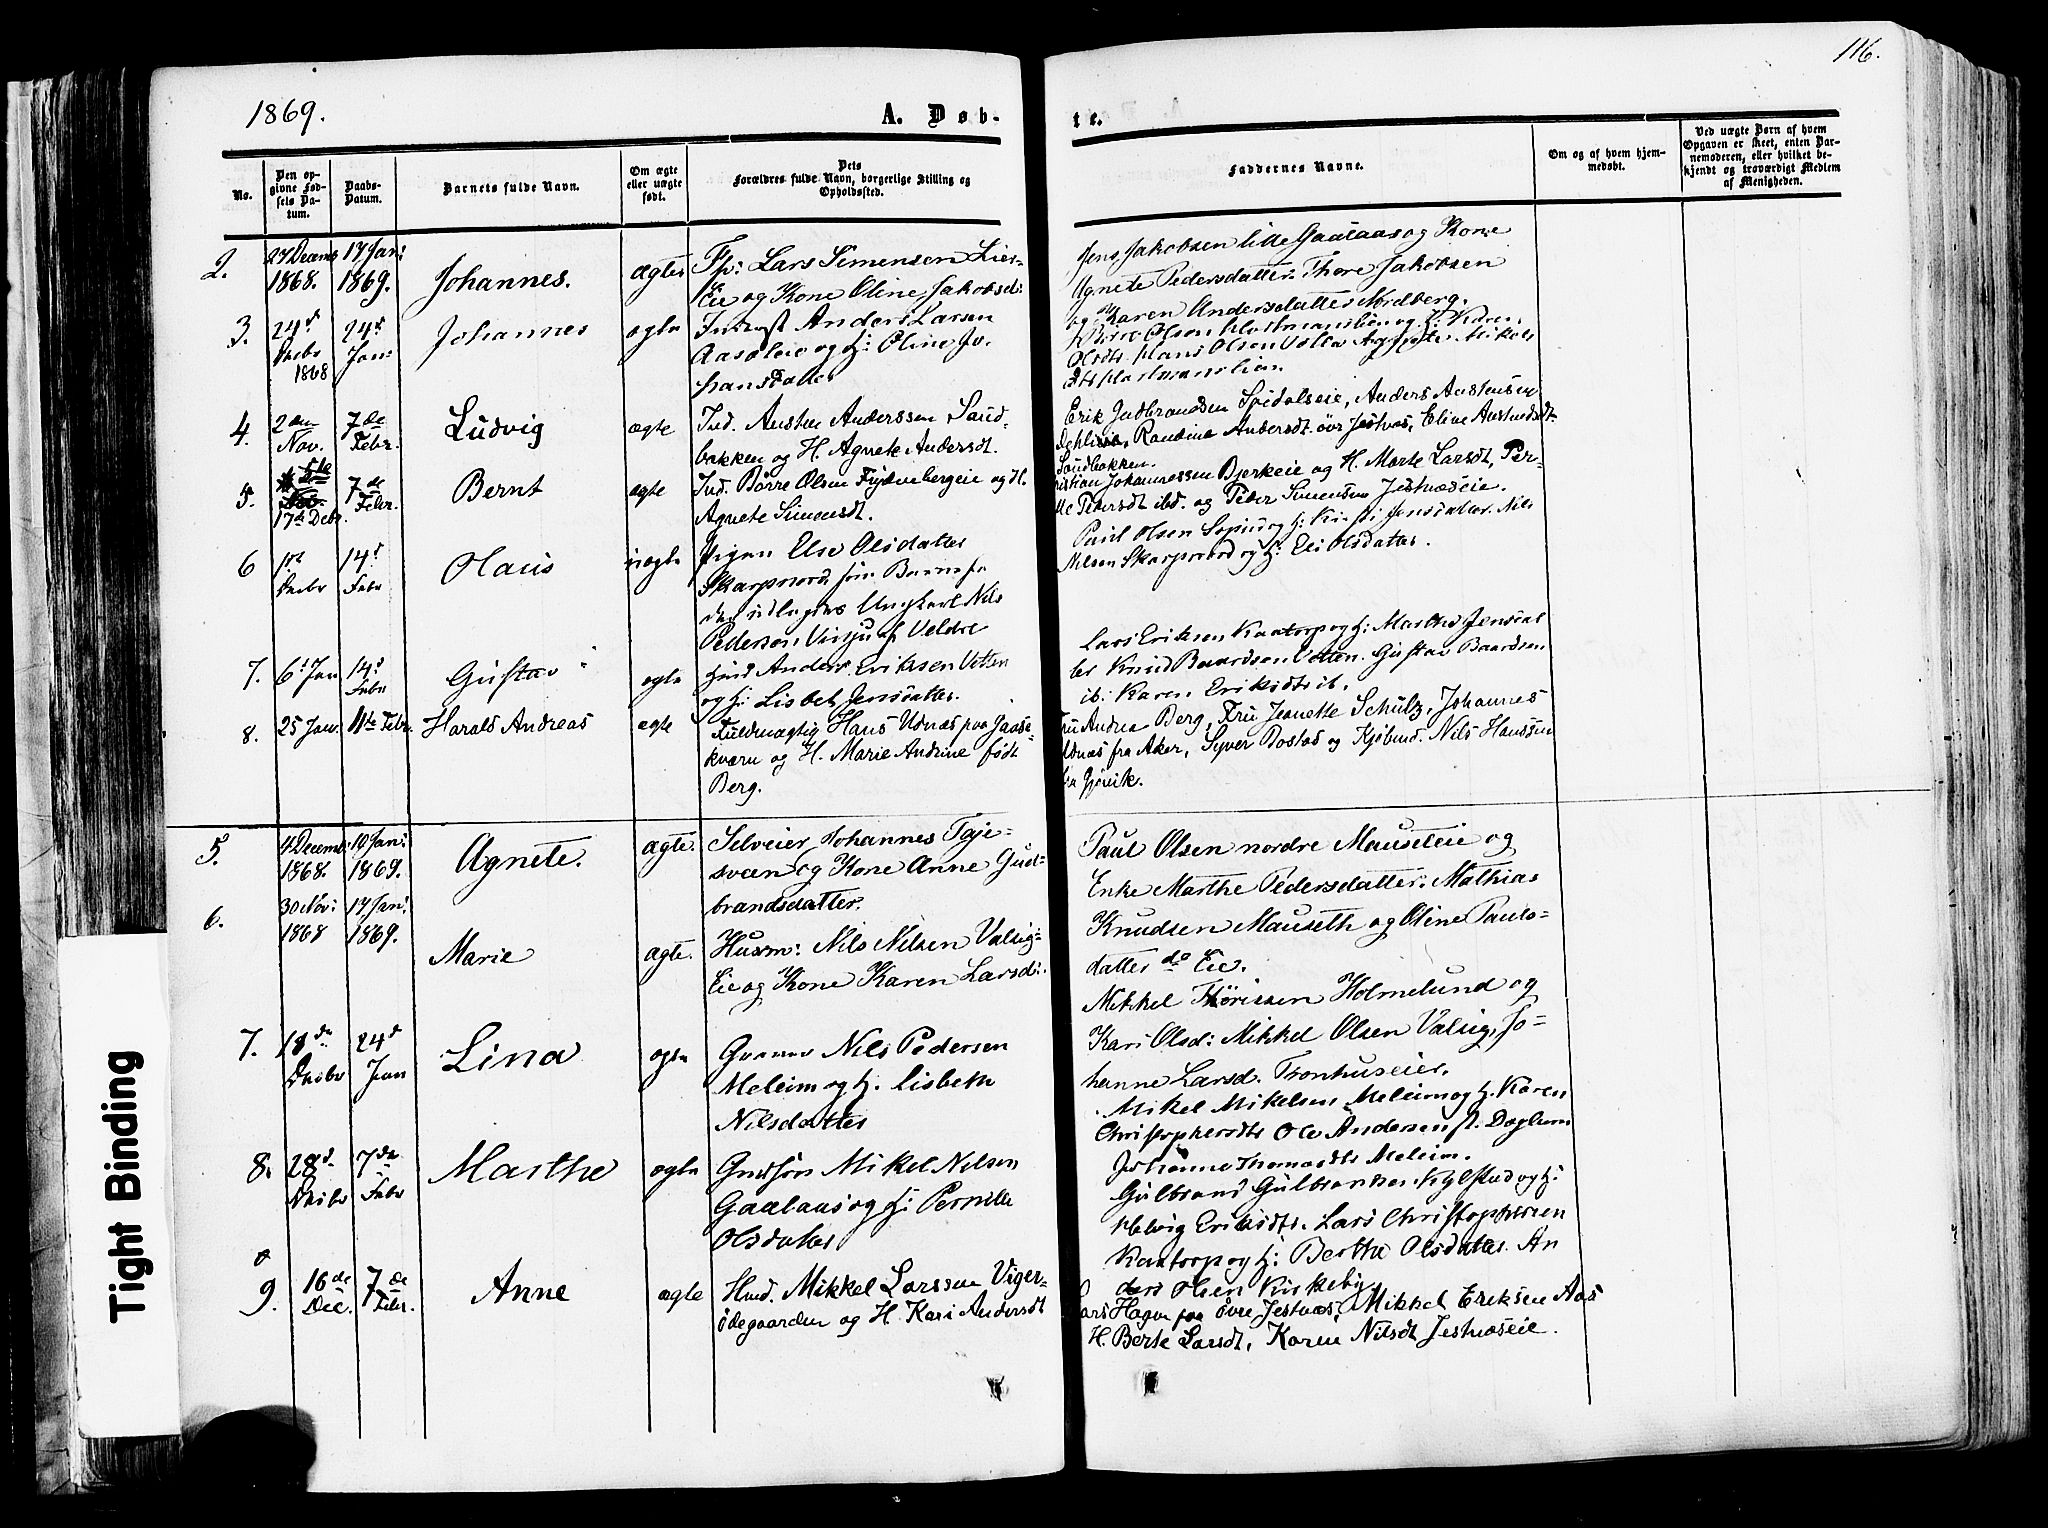 116.
1869.
A. Døb-
te.
No.
Den op-
givne Fød-
sels Da-
tum.
Daabs-
Datum.
Barnets fulde Navn.
Om ægte
eller uægte
født.
Dets
Forældres fulde Navn, borgerlige Stilling og
Opholdssted.
Faddernes Navne.
Om og af hvem hjem-
medøbt.
Ved uægte Børn af hvem
Opgaven er skeet, enten Bar-
nemoderen, eller hvilket be-
kjendt og troværdigt Medlem
af Menigheden.
2.
27 Decemb
1868.
17 Jan:
1869.
Johannes.
ægte
Fp: Lars Simensen Lier-
Eie og Kone Oline Jakobsd:
Jens Jakobsen lille Gaalaas og Kone
Agnete Pedersdatter. Thore Jakobsen
og Karen Andersdatter Nordberg.
3.
24d
Decbr
1868
24d
Jan:
Johannes
ægte
Anders Larsen
og H: Oline Jo-
hansdatter
Olsen og H: Karen
Olsdtr. Hans Olsen Mikels
4.
2den
Nov.
7de
Febr.
Ludvig
ægte
Ind. Austen Anderssen Sand-
bakken og H. Agnete Andersdt.
Erik Gudbrandsen Spidalseie, Anders Austensen
Dehlieie, Randine Andersdt. övr Jestnes, Eline Austensdt.
Sandbakken.
5.
17de Debr.
7de
Febr.
Bernt
ægte
Ind. Börre Olsen Frydenbergeie og H.
Agnete Simensdt.
Johannessen Bjerkeie og H. Marte Larsdt, Per-
Pedersdt ibd. og Peter Simensen Jestnæseie.
6
1ste
Decbr
14d
Febr
Olaus
uægte
Pigen Else Olsdatter
Skarpnord, som Barnefa
der udlagdes Ungkarl Nils
Pedersen, af Veldre
Paul Olsen og H: Jensdatter. Nils
Nilsen Skarpnord og H: Eli Olsdatter.
7.
6d Jan
14d
Febr
Gustav
ægte
Anders Eriksen Vetten
og H: Lisbet Jensdatter.
Lars Eriksen Kaatorp og H: Marthe Jensdat
ter Knud Baardsen Vetten. Gustav Baardsen
ib: Karen Eriksdtr ib.
8.
25 Jan.
11te Febr.
Harald Andreas
ægte
Fuldmægtig Hans Udnæs paa Jaase-
kværn og H. Marie Andrine født
Berg.
Fru Andrea Berg, Fru Jeanette Schulz, Johannes
Udnæs fra Aker, Syver Bostad og Kjøbmd. Nils Hanssen
fra Gjøvik.
5.
4 Decemb:
1868.
10 Jan:
1869.
Agnete.
ægte.
Selveier Johannes Tøje-
sveen og Kone Anne Gud-
brandsdatter.
Paul Olsen nordre Mauseteie og
Enke Marthe Pedersdatter. Mathias
Knudsen Mauseth og Oline Pauls-
datter do Eie.
6.
30 Nov:
1868
17 Jan:
1869.
Marie
ægte.
Husm: Nils Nilsen Valsig-
Eie og Kone Karen Larsd:.
Mikkel Thorissen Holmelund og
Kari Olsd: Mikkel Olsen Valsig, Jo-
hanne Larsd. Tronhuseier.
7.
18de
Decbr
24d
Jan
Lina
ægte
Gaarm Nils Pedersen
Meleim og H: Lisbeth
Nilsdatter
Mikel Mikelsen Meleim og H. Karen
Christophersdtr Ole Andersen Daglum
Johanne Thomasdtr Meleim.
8.
28d
Decbr
7de
Febr
Marthe
ægte
Mikel Nilsen
Gaalaas og H: Pernille
Olsdatter
Gulbrand Gulbrandsen Kylstad og H:
Helvig Eriksdtr. Lars Christophersen
Kaatorp og H: Berthe Olsdatter. An
ders Olsen Kirkeby
9.
16de
Dec.
7de
Febr.
Anne
ægte
Husmd. Mikkel Larssen Viger-
ødegaarden og H. Kari Andersdt
Lars Hagen paa övre Jestnæs, Mikkel Eriksen Aas
H. Berte Larsdt, Karen Nilsdt Jestnæseie.
Tight Binding